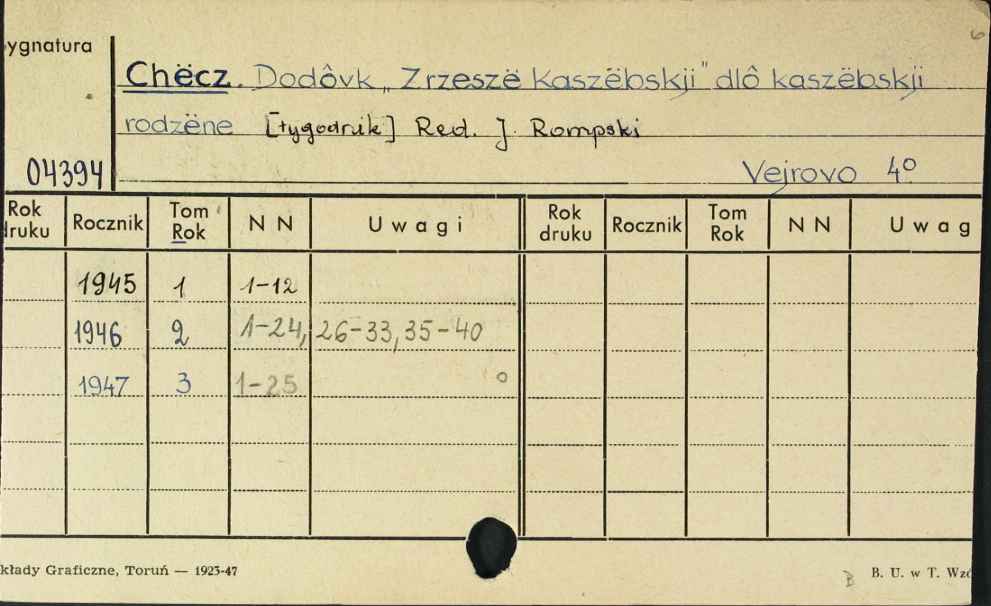 ygnatura
Chëcz. Dodôvk „Zrzeszë Kaszëbskji" dlô kaszëbskji
rodzëne [tygodnik] Red. J. Rompski
04394
Vejrovo 4°
Rok druku Rocznik Tom Rok N N Uwagi Rok druku Rocznik Tom Rok N N Uwag
1945 1 1-12
1946 2 1-24, 26-33, 35-40
1947 3 1-25
kłady Graficzne, Toruń — 1923-47
B. U. w T. Wzó